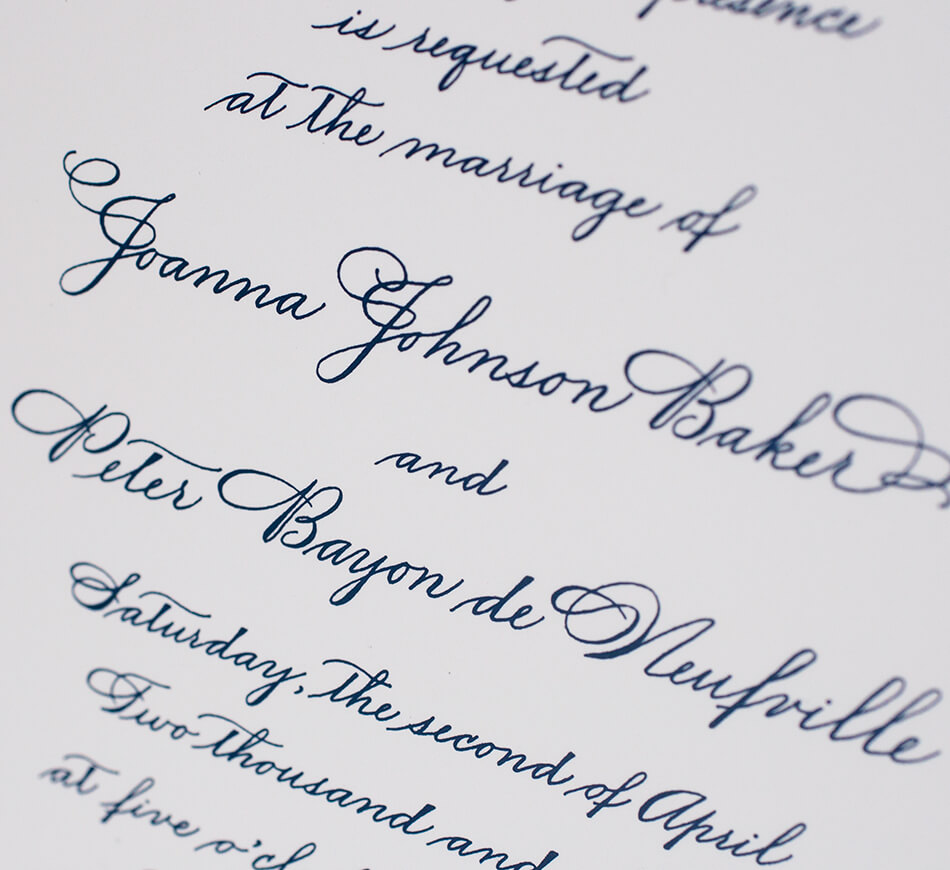 presence
is requested
at the marriage of
Joanna Johnson Baker
and
Peter Bayon de Neufville
Saturday, the second of April
Two thousand and
at five